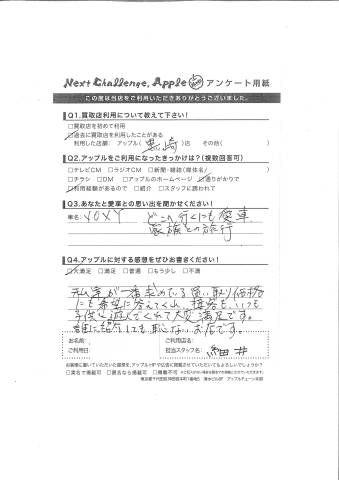 Next Challenge, Apple アンケート用紙
この度は当店をご利用いただきありがとうございました。
Q1.買取店利用について教えて下さい!
□買取店を初めて利用
☑過去に買取店を利用したことがある
利用した店舗: アップル( 黒崎 )店 その他( )
Q2.アップルをご利用になったきっかけは?(複数回答可)
□テレビCM □ラジオCM □新聞・雑誌(媒体名/ )
□チラシ □DM □アップルのホームページ ☑通りがかりで
☑利用経験があるので □紹介 □スタッフに誘われて
Q3.あなたと愛車との思い出を聞かせください!
車名: VOXY どこへ行くにも愛車
家族との旅行
Q4.アップルに対する感想をぜひお書きください!
☑大満足 □満足 □普通 □もう少し □不満
私達が一番求めている買い取り価格
にも希望に答えてくれ、接客も、いつも
子供と遊んでくれて大変満足です。
誰に紹介しても恥じないお店です。
お名前: ご利用店名:
ご利用日: 担当スタッフ名:
お客様に書いていただいた感想を、アップルHPや広告に掲載させていただいてもよろしいでしょうか?
□実名で掲載可 □匿名なら掲載可 □掲載不可